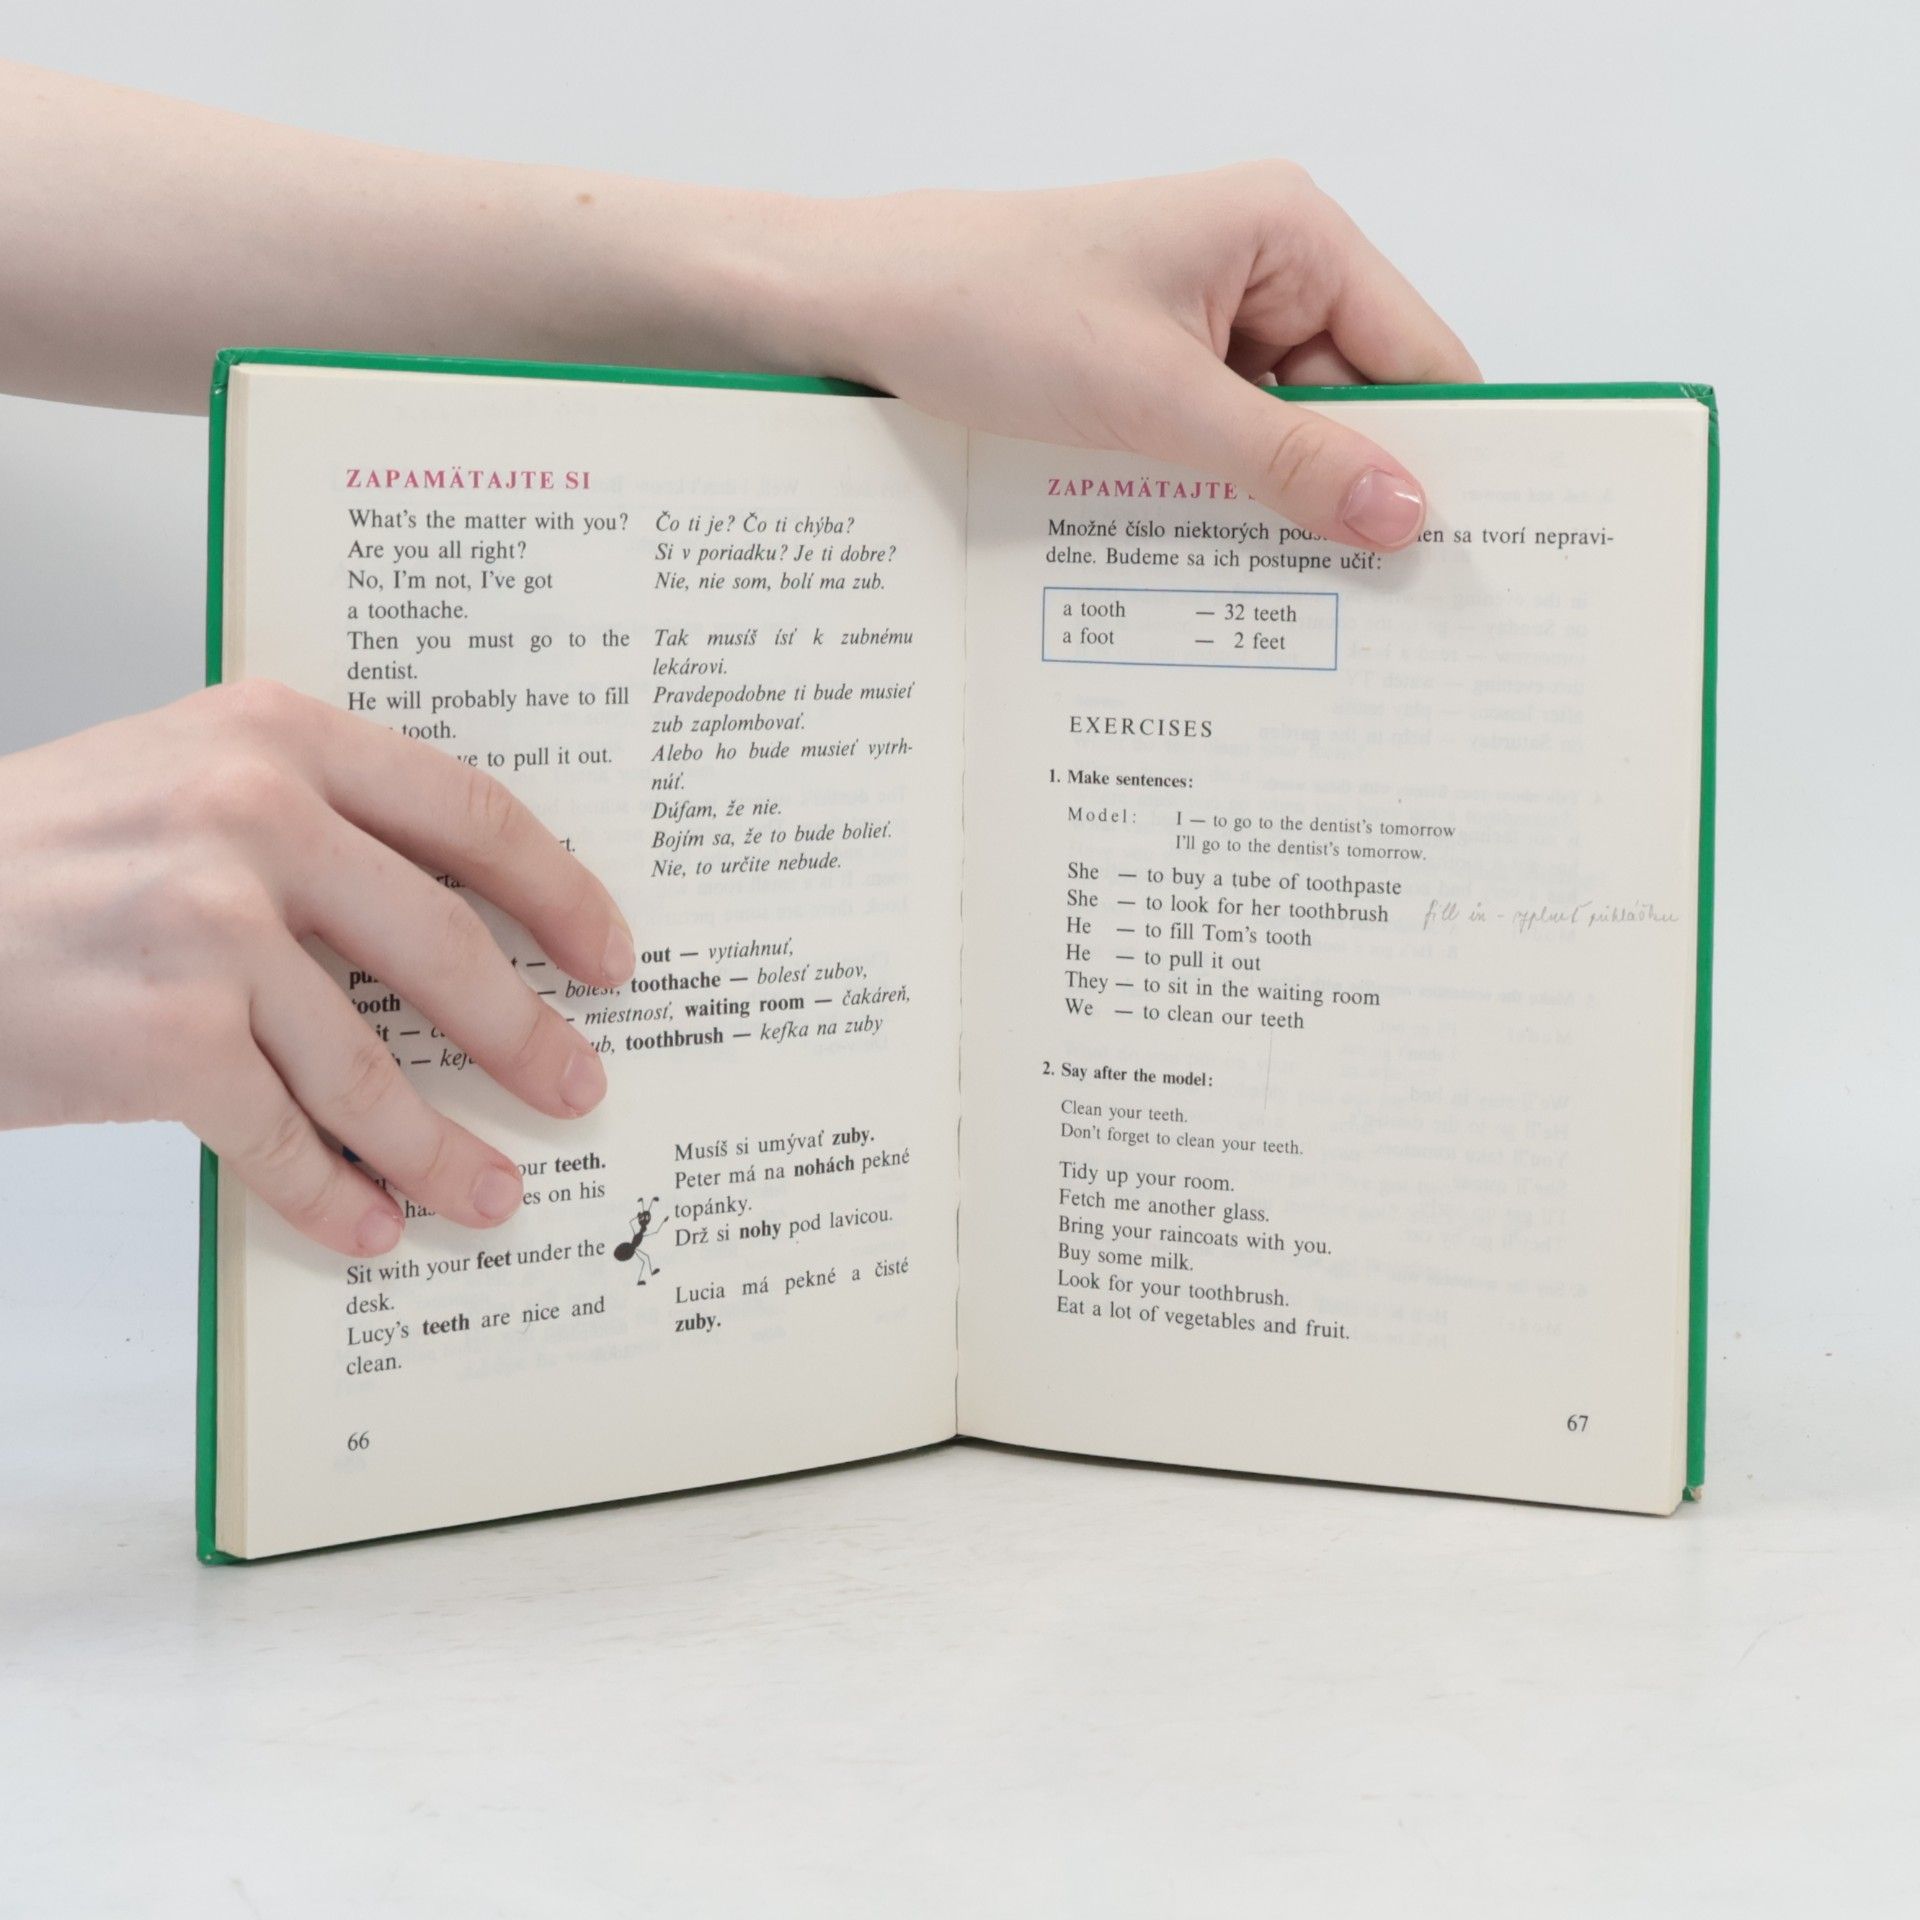 ZAPAMÄTAJTE SI
What's the matter with you? Čo ti je? Čo ti chýba?
Are you all right? Si v poriadku? Je ti dobre?
No, I'm not, I've got Nie, nie som, bolí ma zub.
a toothache.
Then you must go to the Tak musíš ísť k zubnému
dentist. lekárovi.
He will probably have to fill Pravdepodobne ti bude musieť
tooth. zub zaplombovať.
to pull it out. Alebo ho bude musieť vytrh-
núť.
Dúfam, že nie.
Bojím sa, že to bude bolieť.
Nie, to určite nebude.
out — vytiahnuť,
tooth — bolesť, toothache — bolesť zubov,
— miestnosť, waiting room — čakáreň,
toothbrush — kefka na zuby
teeth. Musíš si umývať zuby.
on his Peter má na nohách pekné
topánky.
Sit with your feet under the Drž si nohy pod lavicou.
desk.
Lucy's teeth are nice and Lucia má pekné a čisté
clean. zuby.
66
ZAPAMÄTAJTE
Množné číslo niektorých sa tvorí nepravi-
delne. Budeme sa ich postupne učiť:
a tooth — 32 teeth
a foot — 2 feet
EXERCISES
1. Make sentences:
Model: I — to go to the dentist's tomorrow
I'll go to the dentist's tomorrow.
She — to buy a tube of toothpaste
She — to look for her toothbrush fill in -
He — to fill Tom's tooth
He — to pull it out
They — to sit in the waiting room
We — to clean our teeth
2. Say after the model:
Clean your teeth.
Don't forget to clean your teeth.
Tidy up your room.
Fetch me another glass.
Bring your raincoats with you.
Buy some milk.
Look for your toothbrush.
Eat a lot of vegetables and fruit.
67